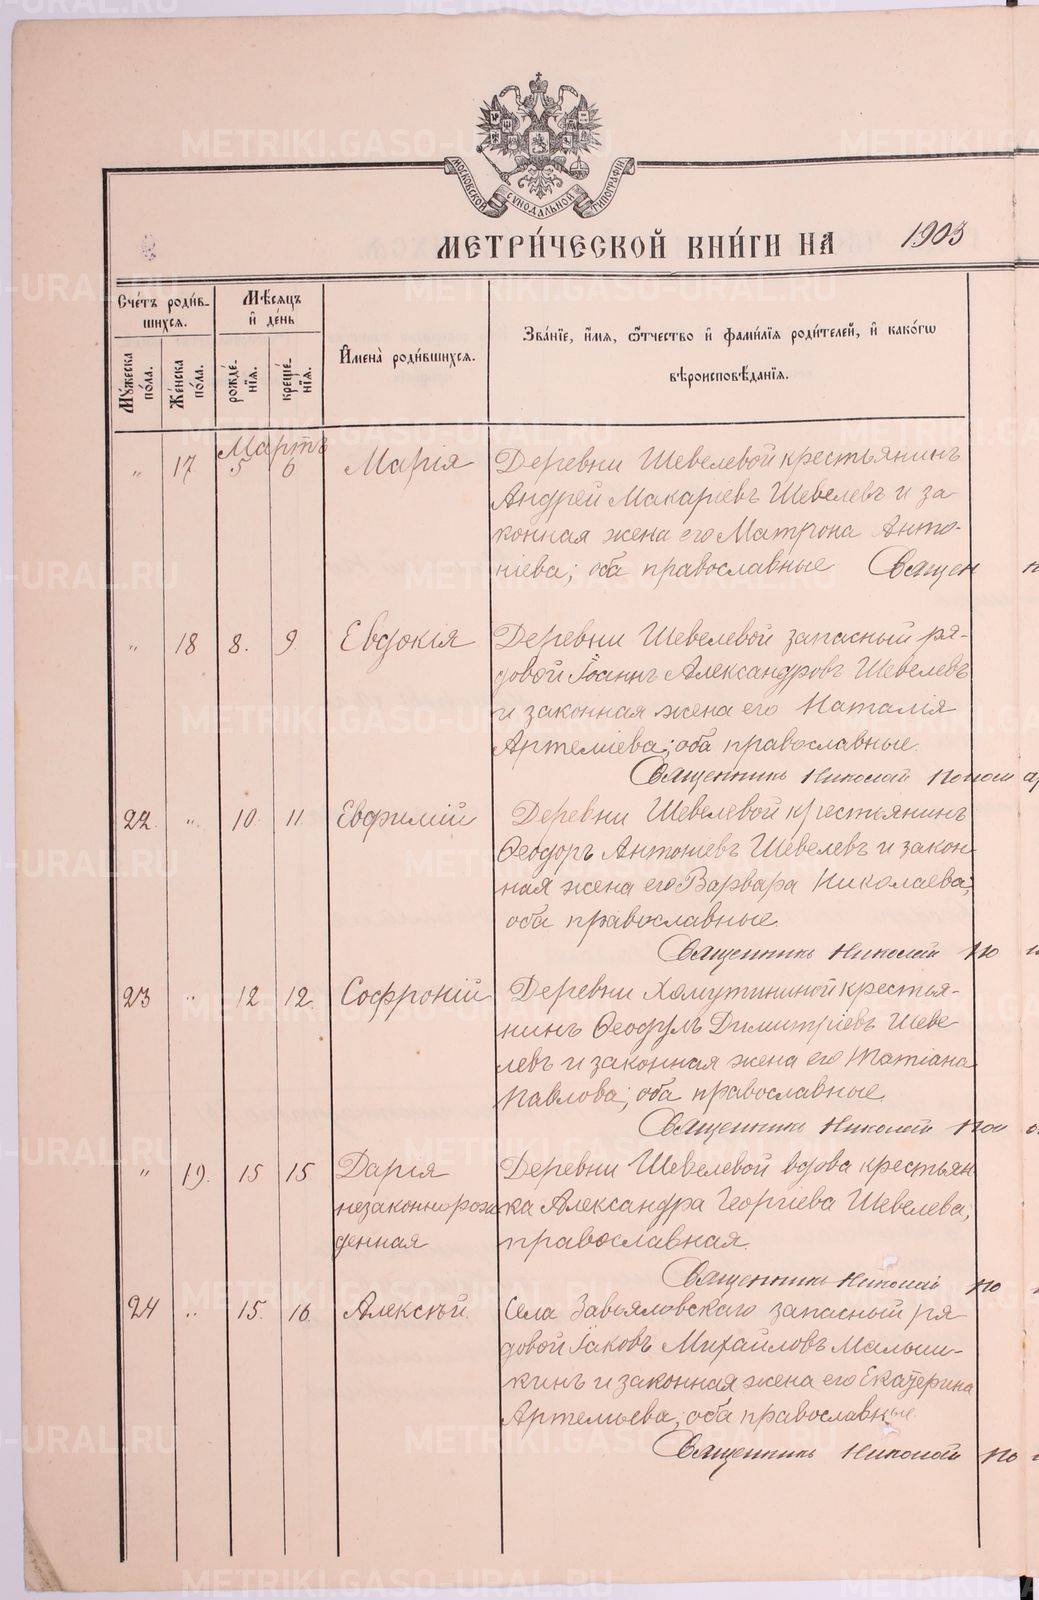 МОСКОВСКОЙ СУНОДАЛЬНОЙ ТИПОГРАФІИ
МЕТРИ́ЧЕСКОЙ КНИ́ГИ НА 1903
Сче́тъ роди́в-
шихсѧ.
Мꙋ́жеска
по́ла.
Же́нска
по́ла.
Мѣ́сѧцъ
и҆ де́нь
рожде́-
нїѧ.
креще́-
нїѧ.
И҆мена̀ роди́вшихсѧ.
Зва́нїе, и҆́мѧ, ѻ҆́тчество и҆ фами́лїѧ роди́телей, и҆ како́гѡ
вѣроисповѣ́данїѧ.
Мартъ
" 17 5 6 Марія
Деревни Шевелевой крестьянинъ
Андрей Макаріевъ Шевелевъ и за-
конная жена его Матрона Анто-
ніева; оба православные Священ
" 18 8. 9. Евдокія
Деревни Шевелевой запасный ря-
довой Іоаннъ Александровъ Шевелевъ
и законная жена его Наталія
Артеміева; оба православные.
Священникъ Николай
22 " 10. 11 Евфимій
Деревни Шевелевой крестьянинъ
Ѳеодоръ Антоніевъ Шевелевъ и закон-
ная жена его Варвара Николаева;
оба православные.
Священникъ Николай По
23 " 12 12. Софроній
Деревни Хомутининой крестья-
нинъ Ѳеодулъ Димитріевъ Шеве
левъ и законная жена его Татіана
Павлова; оба православные
Священникъ Николай Поп
" 19. 15 15 Дарія
незаконнорож
денная
Деревни Шевелевой вдова крестьян
ка Александра Георгіева Шевелева;
православная.
Священникъ Николай По
24 " 15. 16. Алексѣй.
Села Завьяловскаго запасный ря-
довой Іаковъ Михайловъ Малыш-
кинъ и законная жена его Екатерина
Артемьева; оба православные.
Священникъ Николай По
METRIKI.GASO-URAL.RU